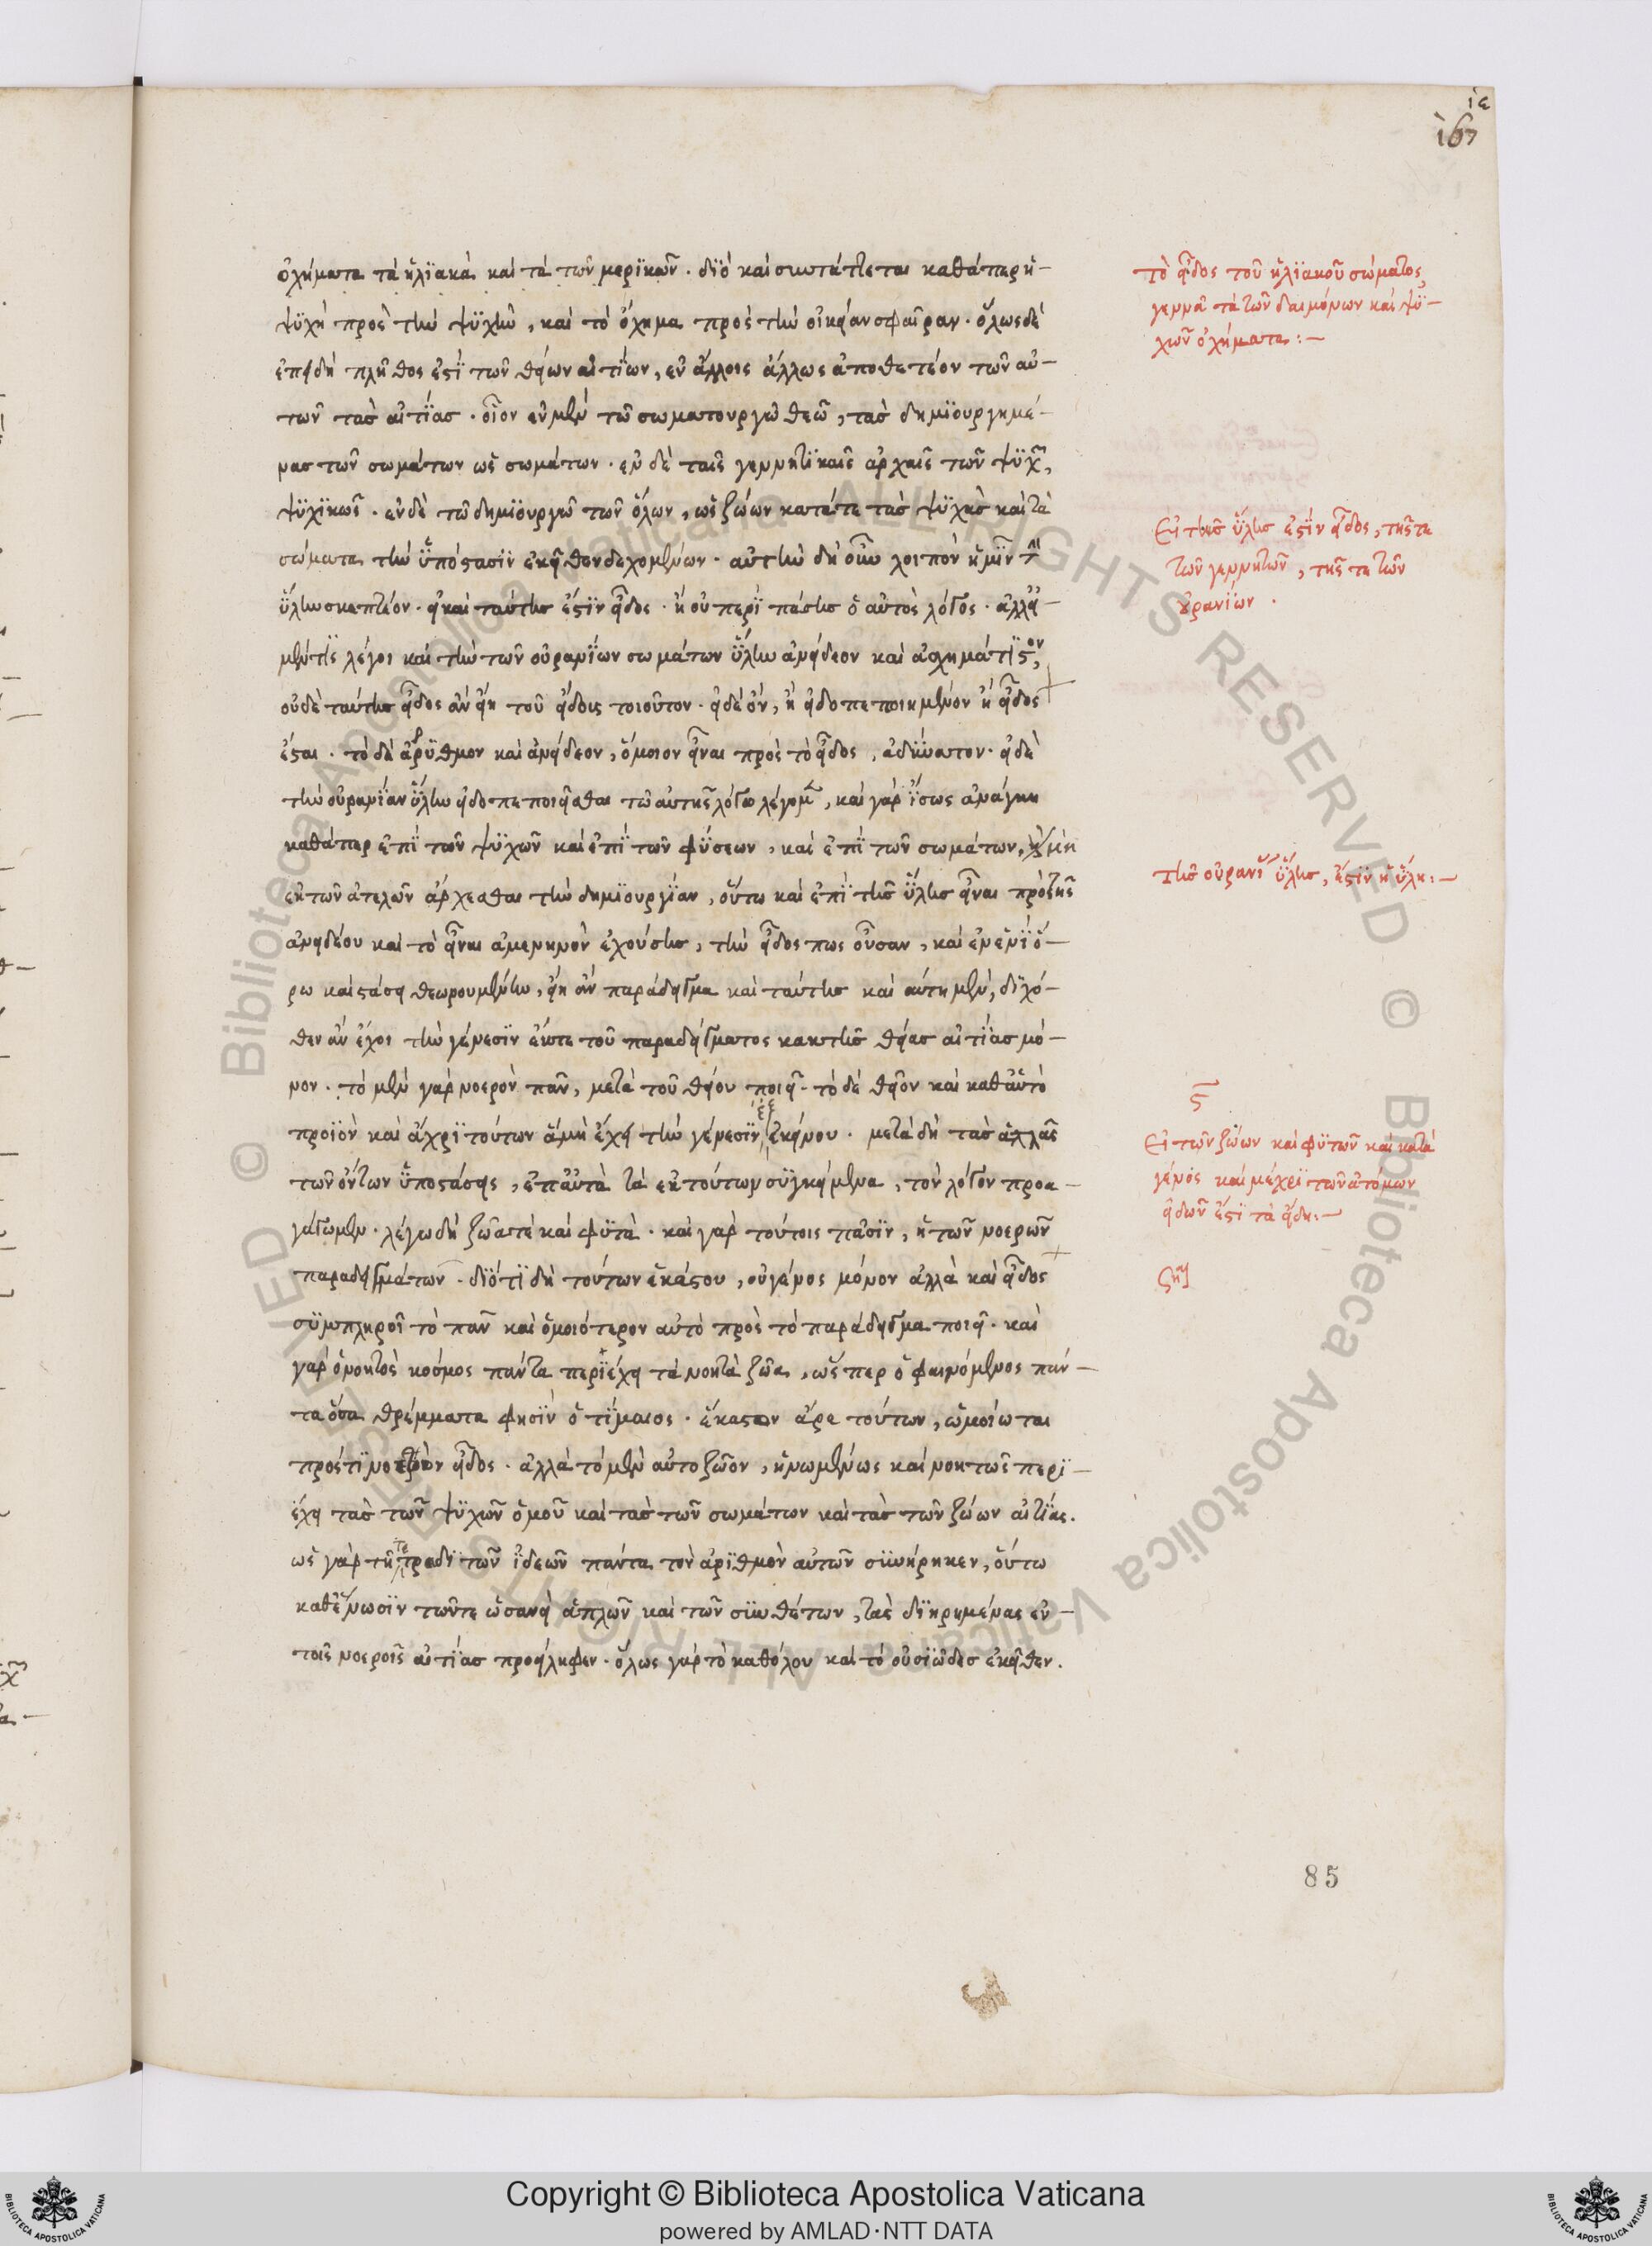 ιε
167
ὀχήματα τὰ ἡλϊακὰ καὶ τὰ τῶν μερϊκῶν . διὸ καὶ συντάττεται καθάπερ ἡ-
ψϋχὴ πρὸς τὴν ψϋχὴν , καὶ τὸ ὄχημα πρὸς τὴν οἰκείαν σφαῖραν . ὅλως δὲ
ἐπειδὴ πλῆθος ἐστὶ τῶν θείων αἰτίων , ἐν ἄλλοις ἄλλως ἀποθετέον τῶν αὐ-
τῶν τὰς αἰτίας . οἷον ἐν μὲν τῶ σωματουργῶ θεῶ , τὰς δημϊουργημέ-
νας τῶν σωμάτων ὡς σωμάτων . ἐν δὲ ταῖς γεννητϊκαῖς ἀρχαῖς τῶν ψϋχῶν ,
ψϋχϊκῶς . ἐν δὲ τῶ δημϊουργῶ τῶν ὅλων , ὡς ζώων κατά τε τὰς ψϋχὰς καὶ τὰ
σώματα τὴν ὑπόστασϊν ἐκεῖθεν δεχομένων . αὐτὴν δὴ οὖν λοιπὸν ἡμῖν τὴν
ὕλην σκεπτέον . εἰ καὶ ταύτης ἐστὶν εἶδος . ἢ οὐ περὶ πάσης ὁ αὐτὸς λόγος . ἀλλ' εἰ-
μέν τϊς λέγοι καὶ τὴν τῶν οὐρανίων σωμάτων ὕλην ἀνείδεον καὶ ἀσχημάτϊστον ,
οὐδὲ ταύτης εἶδος ἂν εἴη τοῦ εἴδους τοιοῦτον . εἰ δὲ ὄν , ἢ εἰδοπεποιημένον ἢ εἶδος
ἔσται . τὸ δὲ ἀρρύθμον καὶ ἀνείδεον , ὅμοιον εἶναι πρὸς τὸ εἶδος , ἀδύνατον . εἰ δὲ
τὴν οὐρανίαν ὕλην εἰδοπεποιεῖσθαι τῶ αὐτῆς λόγω λέγομεν , καὶ γὰρ ἴσως ἀνάγκη
καθάπερ ἐπὶ τῶν ψϋχῶν καὶ ἐπὶ τῶν φύσεων , καὶ ἐπὶ τῶν σωμάτων , μὴ
ἐκ τῶν ἀτελῶν ἄρχεσθαι τὴν δημϊουργίαν , οὕτω καὶ ἐπὶ τῆς ὕλης εἶναι πρὸ τῆς
ἀνειδέου καὶ τὸ εἶναι ἀμενηνὸν ἐχούσης , τὴν εἶδος πως οὖσαν , καὶ ἐν ἑνὶ ὅ-
ρω καὶ στάσει θεωρουμένην , εἴη ἂν παράδειγμα καὶ ταύτης καὶ αὕτη μὲν , διχό-
θεν ἂν ἔχοι τὴν γένεσϊν ἔκ τε τοῦ παραδείγματος κἀκ τῆς θείας αἰτίας μό-
νον . τὸ μὲν γὰρ νοερὸν πᾶν , μετὰ τοῦ θείου ποιεῖ . τὸ δὲ θεῖον καὶ καθ' αὑτὸ
προϊὸν καὶ ἄχρϊ τούτων ἃ μὴ ἔχει τὴν γένεσϊν ἐξ ἐκείνου . μετὰ δὴ τὰς ἄλλας
τῶν ὄντων ὑποστάσεις , ἐπ' αὐτὰ τὰ ἐκ τούτων συγκείμενα , τὸν λόγον προα-
γάγωμεν . λέγω δὴ ζῶά τε καὶ φϋτὰ . καὶ γὰρ τούτοις πᾶσϊν , ἢ τῶν νοερῶν
παραδειγμάτων . διότϊ δὴ τούτων ἑκάστου , οὐ γένος μόνον ἀλλὰ καὶ εἶδος
συμπληροῖ τὸ πᾶν καὶ ὁμοιότερον αὐτὸ πρὸς τὸ παράδειγμα ποιεῖ . καὶ
γὰρ ὁ νοητὸς κόσμος πάντα περϊέχει τὰ νοητὰ ζῶα , ὥσπερ ὁ φαινόμενος πάν-
τα ὅσα θρέμματα φησὶν ὁ τίμαιος . ἕκαστον ἄρα τούτων , ὡμοίωται
πρός τϊ νοερὸν εἶδος . ἀλλὰ τὸ μὲν αὐτοζῶον , ἡνωμένως καὶ νοητῶς περϊ-
έχει τὰς τῶν ψϋχῶν ὁμοῦ καὶ τὰς τῶν σωμάτων καὶ τὰς τῶν ζώων αἰτίας .
ὡς γὰρ τῆ τετράδϊ τῶν ἰδεῶν πάντα τὸν ἀρϊθμὸν αὐτῶν συνήρηκεν , οὕτω
καθ' ἕνωσϊν τῶν τε ὡσανεὶ ἁπλῶν καὶ τῶν συνθέτων , τὰς διηρημένας ἐν-
τοῖς νοεροῖς αἰτίας προείληφεν . ὅλως γὰρ τὸ καθόλου καὶ τὸ οὐσϊῶδες ἐκεῖθεν .
τὸ εἶδος τοῦ ἡλϊακοῦ σώματος ,
γεννᾶ τὰ τῶν δαιμόνων καὶ ψϋ-
χῶν ὀχήματα :-
Εἰ τῆς ὕλης ἐστὶν εἶδος , τῆς τε
τῶν γεννητῶν , τῆς τε τῶν
οὐρανίων .
τῆς οὐρανί(ου) ὕλης , ἐστὶν ἡ ὕλη :-
ϛ
Εἰ τῶν ζώων καὶ φϋτῶν καὶ κατὰ
γένος καὶ μέχρϊ τῶν ἀτόμων
εἰδῶν ἐστὶ τὰ εἴδη :-
ση
85